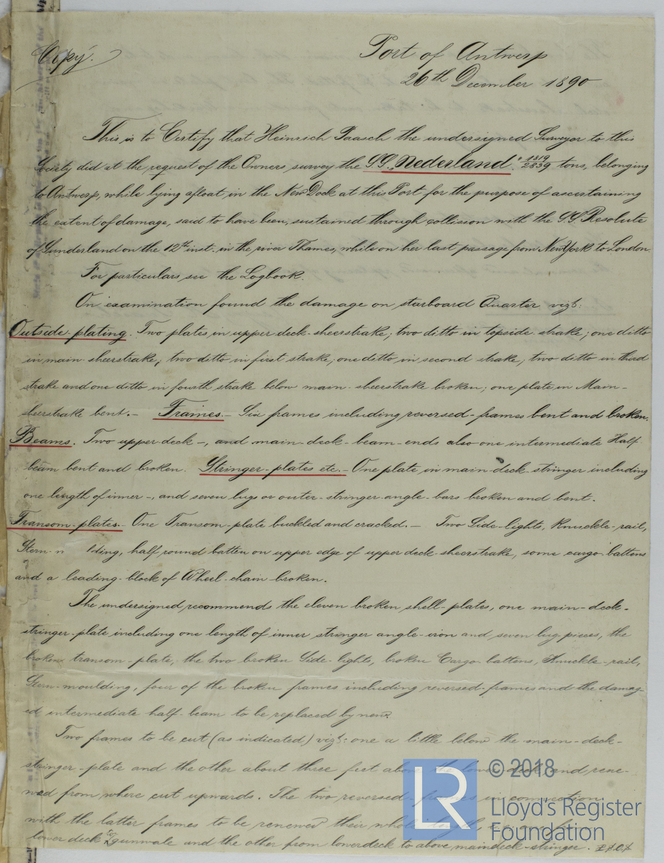 Copy.
Port of Antwerp
26th December 1890
This is to Certify that Heinrich Paasch the undersigned Surveyor to this
Society did at the request of the Owners, survey the S.S. "Nederland", tons, belonging
to Antwerp, while lying afloat, in the New Dock at this Port for the purpose of ascertaining
the extent of damage, said to have been sustained through collision with the S.S. Resolute
of Sunderland on the 12th inst. in the river Thames, while on her last passage from New York to London.
For particulars see the Logbook.
On examination found the damage on starboard Quarter vizt:
Outside plating. Two plates in upper-deck-sheerstrake, two ditto in topside strake, one ditto
in main sheerstrake, two ditto in first strake, one ditto in second strake, two ditto in third
strake and one ditto in fourth strake below main-sheerstrake broken; one plate in Main-
sheerstrake bent.- Frames- Six frames including reversed-frames bent and broken.
Beams. Two upper-deck-, and main-deck-beam-ends also one intermediate Half
beam bent and broken. Stringer-plates etc.- One plate in main-deck-stringer including
one length of inner-, and seven lugs or outer-stringer angle-bars broken and bent.
Transom-plates. One Transom-plate buckled and cracked.- Two Side-lights, Knuckle-rail,
Stern half round batten on upper edge of upper deck-sheerstrake, some cargo-battens
and a leading-block of Wheel-chain broken.
The undersigned recommend the eleven broken shell-plates, one main-deck-
stringer-plate including one length of inner stringer angle-iron and seven lug pieces, the
broken transom-plate, the two broken Side-lights, broken Cargo battens, Knuckle-rail,
Stern-moulding, four of the broken frames including reversed-frames and the damag-
ed intermediate half-beam to be replaced by new.
Two frames to be cut (as indicated) vizt: one a little below the main-deck-
stringer-plate and the other about three feet and rene-
wed from where cut upwards. The two reversed in
with the latter frames to be renewed their whole
lower deck to Gunwale and the other from lowerdeck to above maindeck-stringer.
LR
© 2018
Lloyd's Register
Foundation